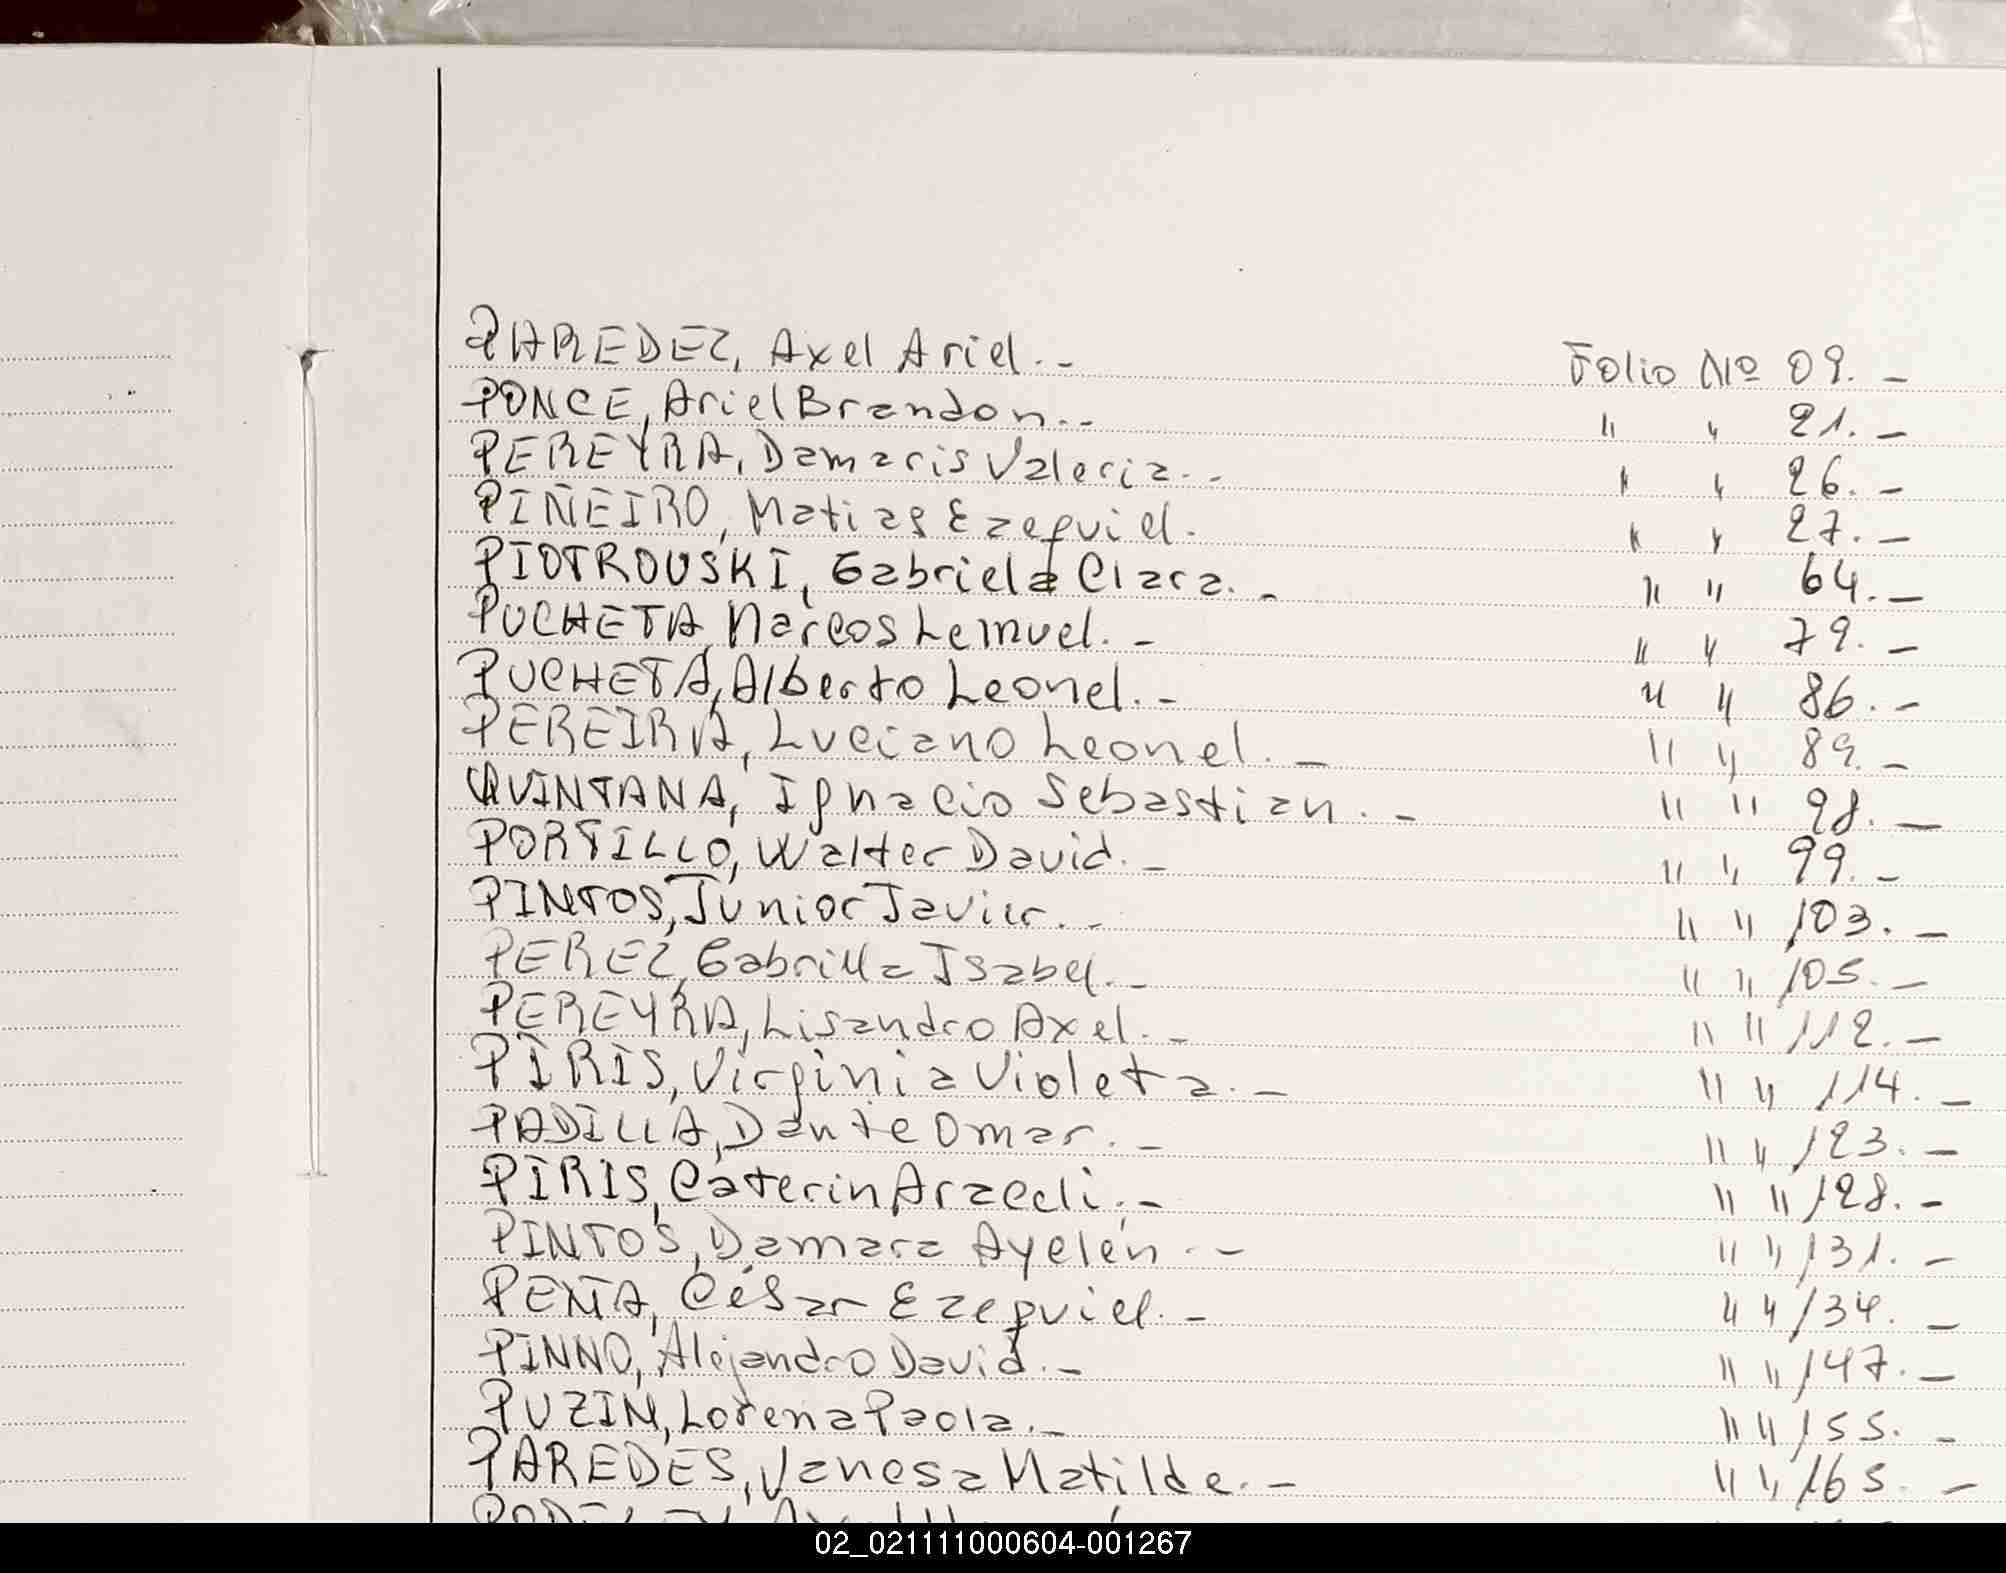 PAREDEZ, Axel Ariel.- Folio Nº 09.-
PONCE, Ariel Brandon.- " " 21.-
PEREYRA, Damaris Valeria.- " " 26.-
PIÑEIRO, Matias Ezequiel. " " 27.-
PIOTROUSKI, Gabriela Clara.- " " 64.-
PUCHETA, Marcos Lemuel.- " " 79.-
PUCHETA, Alberto Leonel.- " " 86.-
PEREIRA, Luciano Leonel.- " " 89.-
QUINTANA, Ignacio Sebastian.- " " 98.-
PORTILLO, Walter David.- " " 99.-
PINTOS, Junior Javier.- " " 103.-
PEREZ, Gabriela Isabel.- " " 105.-
PEREYRA, Lisandro Axel.- " " 112.-
PIRIS, Virginia Violeta.- " " 114.-
PADILLA, Dante Omar.- " " 123.-
PIRIS, Caterin Araceli.- " " 128.-
PINTOS, Damara Ayelén.- " " 131.-
PEÑA, César Ezequiel.- " " 134.-
PINNO, Alejandro David.- " " 147.-
PUZIN, Lorena Paola.- " " 155.-
PAREDES, Vanesa Matilde.- " " 165.-
02_021111000604-001267